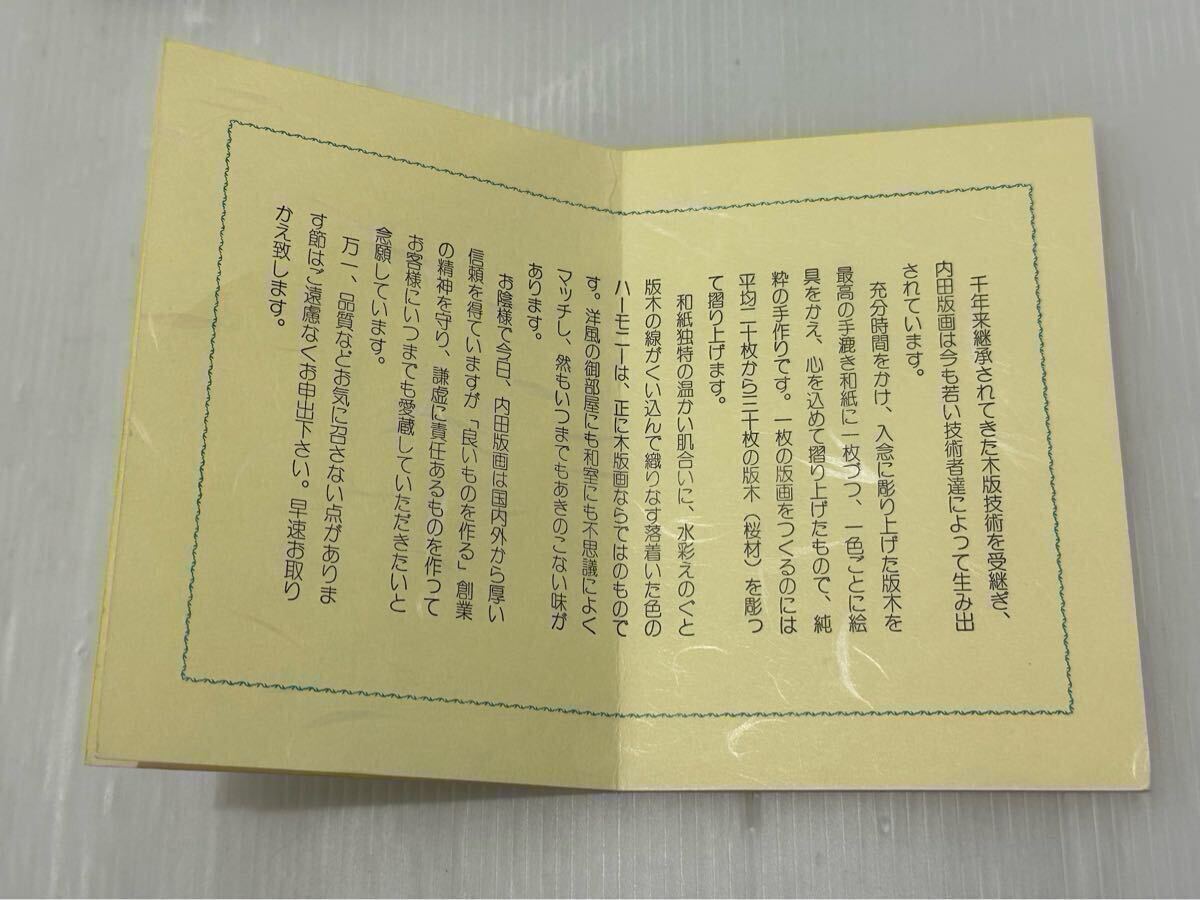 千年来継承されてきた木版技術を受継ぎ、
内田版画は今も若い技術者達によって生み出
されています。
充分時間をかけ、入念に彫り上げた版木を
最高の手漉き和紙に一枚づつ、一色ごとに絵
具をかえ、心を込めて摺り上げたもので、純
粋の手作りです。一枚の版画をつくるのには
平均二十枚から三十枚の版木（桜材）を彫っ
て摺り上げます。
和紙独特の温かい肌合いに、水彩えのぐと
版木の線がくい込んで織りなす落着いた色の
ハーモニーは、正に木版画ならではのもので
す。洋風の御部屋にも和室にも不思議によく
マッチし、然もいつまでもあきのこない味が
あります。
お陰様で今日、内田版画は国内外から厚い
信頼を得ていますが「良いものを作る」創業
の精神を守り、謙虚に責任あるものを作って
お客様にいつまでも愛蔵していただきたいと
念願しています。
万一、品質などお気に召さない点がありま
す節はご遠慮なくお申出下さい。早速お取り
かえ致します。